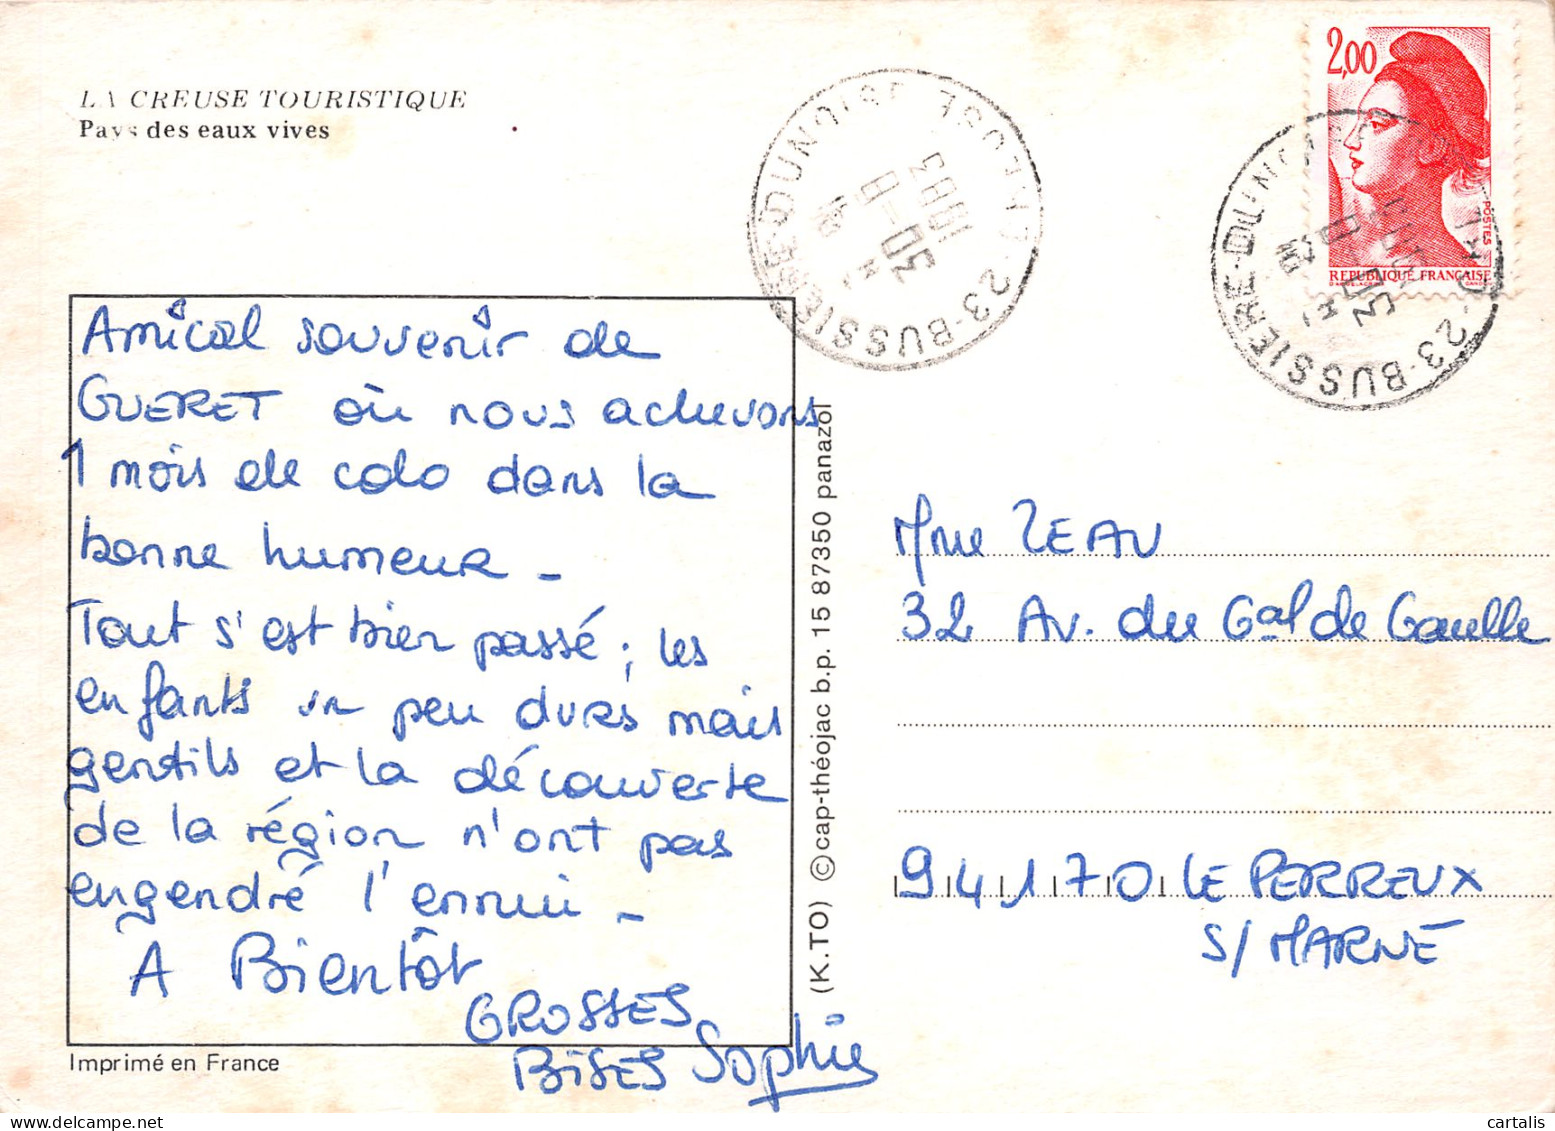 LA CREUSE TOURISTIQUE
Pays des eaux vives
Amical souvenir de
GUERET où nous achevons
1 mois de colo dans la
bonne humeur -
Tout s'est bien passé ; les
enfants un peu durs mais
gentils et la découverte
de la région n'ont pas
engendré l'ennui -
A Bientôt
GROSSES
BISES Sophie
Imprimé en France
(K.TO) © cap-théojac b.p. 15 87350 panazol
23-BUSSIERE-DUNOISE
30-8
1983
2,00
POSTES
REPUBLIQUE FRANÇAISE
23-BUSSIERE-DUNOISE
Mme ZEAU
32 Av. du Gal de Gaulle
94170 LE PERREUX
S/ MARNE
cartalis